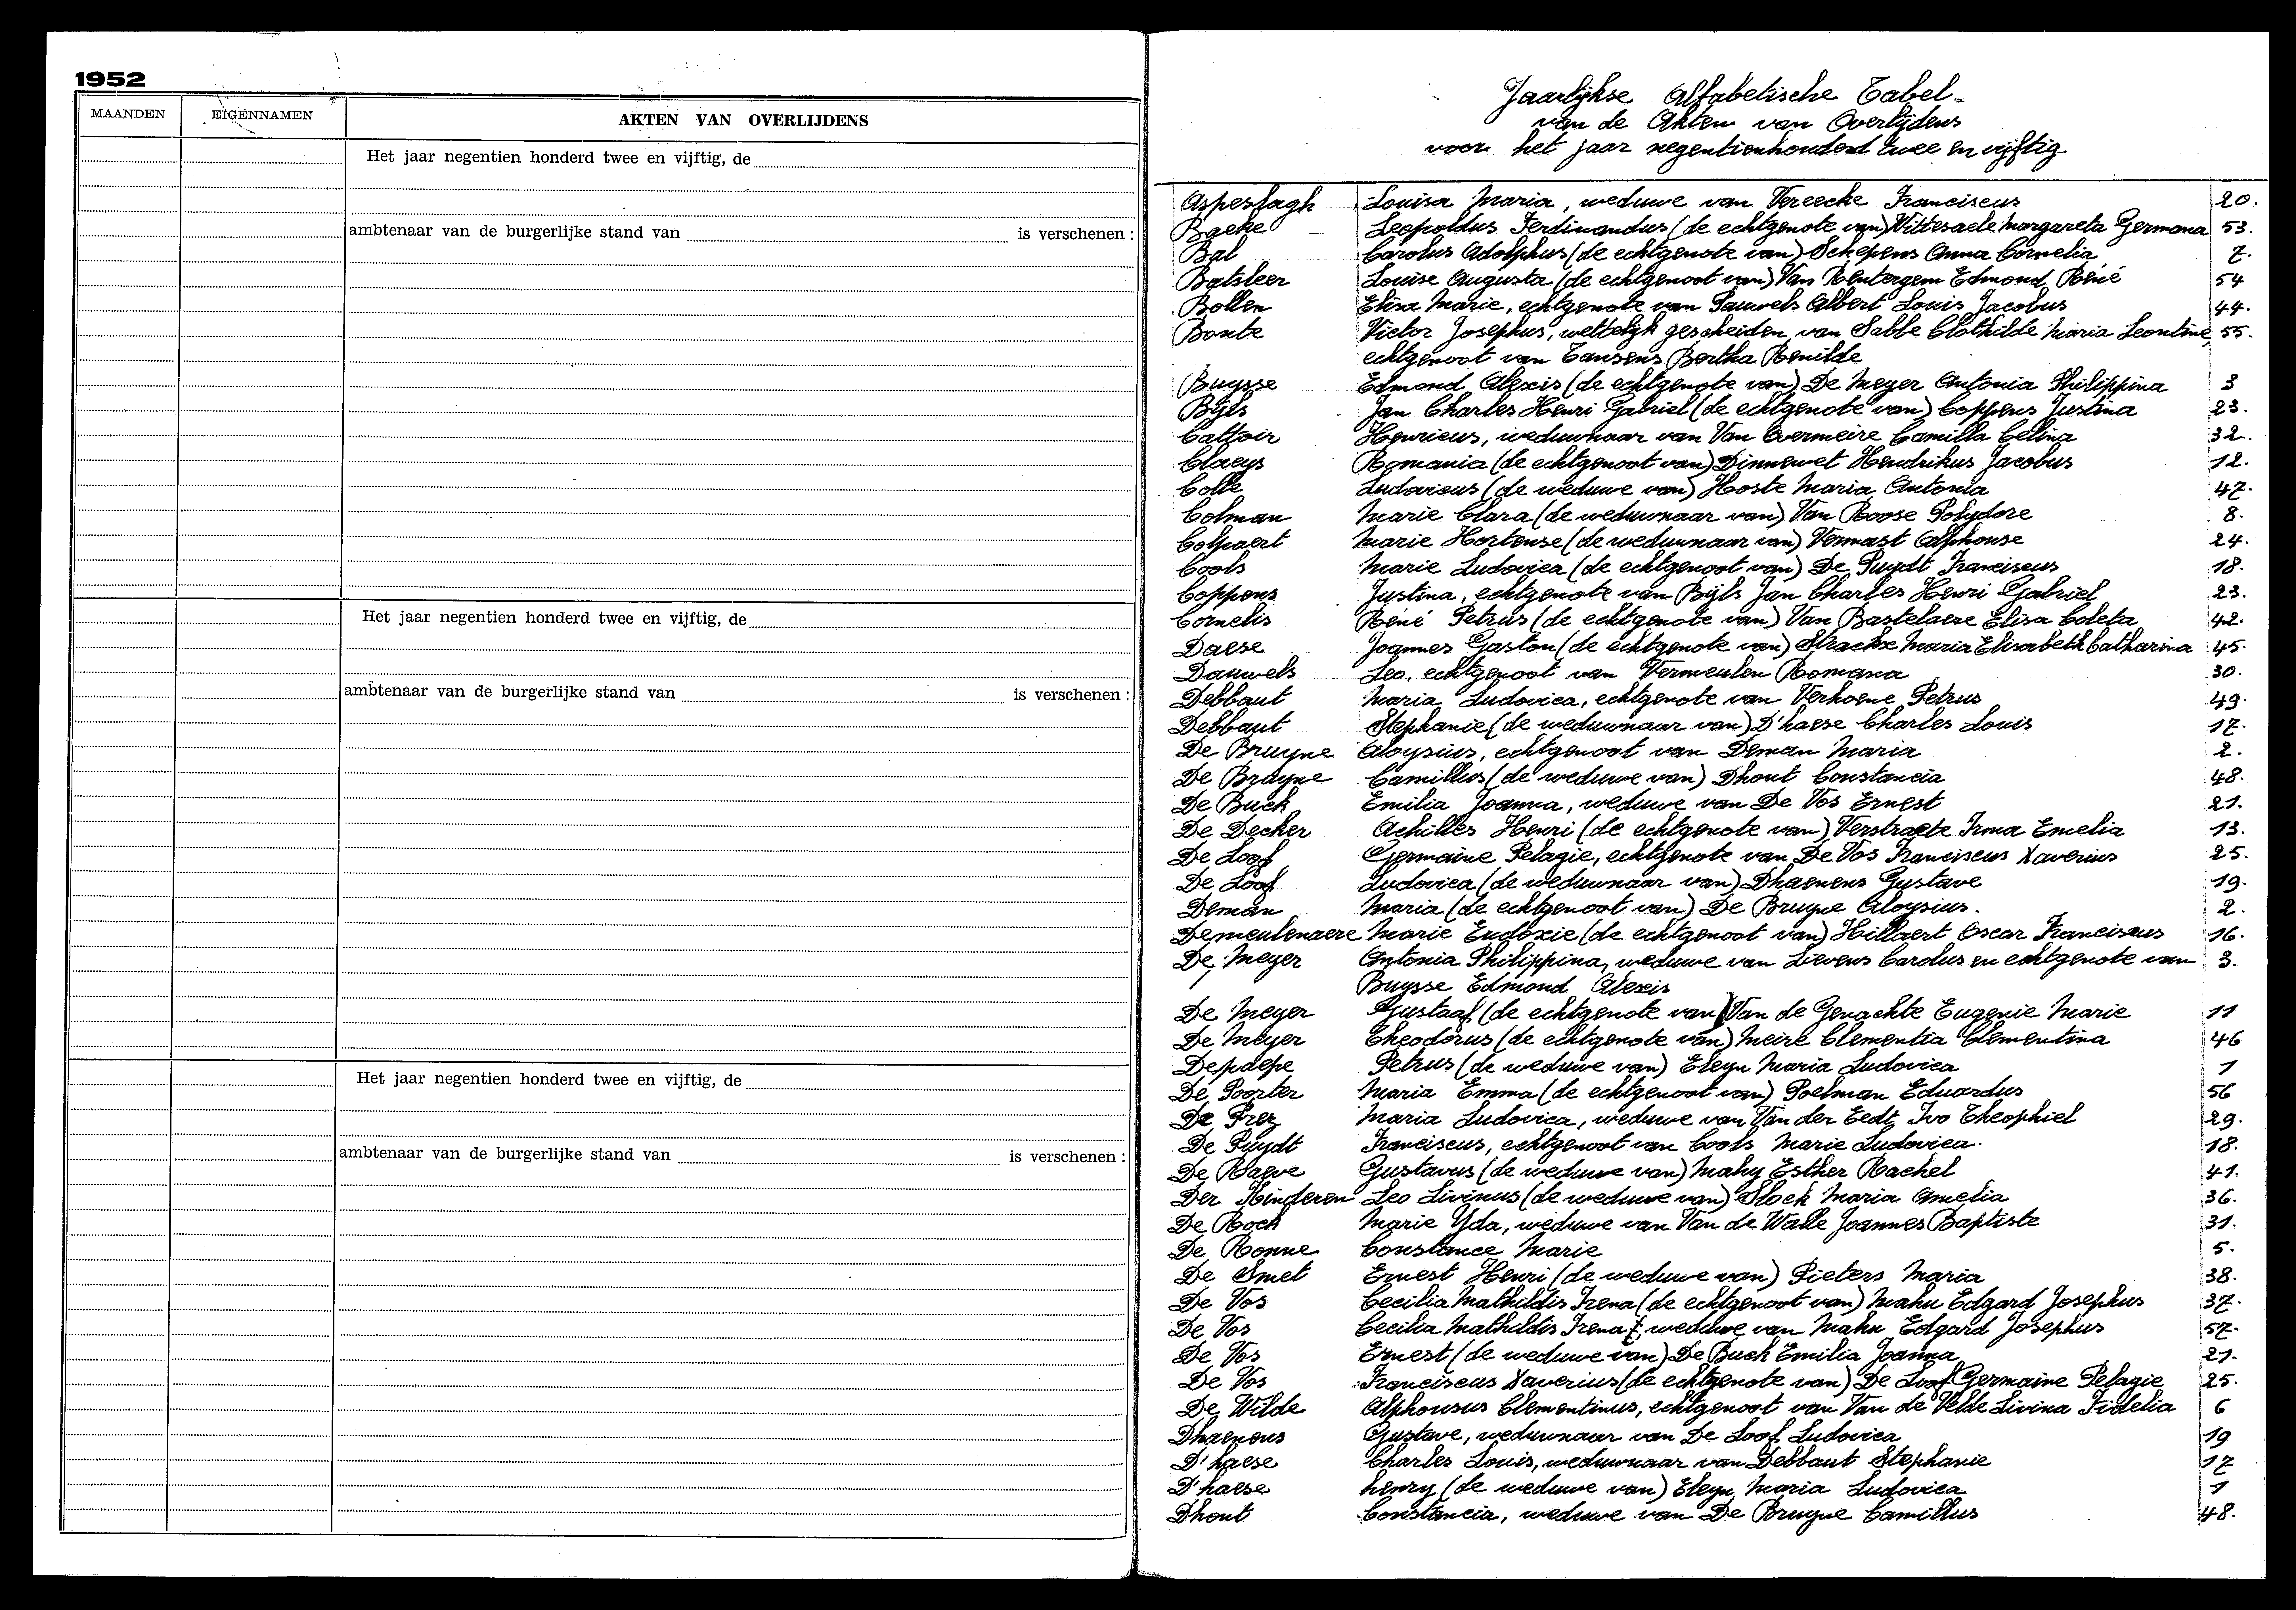 1952
MAANDEN EIGENNAMEN AKTEN VAN OVERLIJDENS
Het jaar negentien honderd twee en vijftig, de
ambtenaar van de burgerlijke stand van is verschenen :
Het jaar negentien honderd twee en vijftig, de
ambtenaar van de burgerlijke stand van is verschenen :
Het jaar negentien honderd twee en vijftig, de
ambtenaar van de burgerlijke stand van is verschenen :
Jaarlijkse Alfabetische Tabel
van de Akten van Overlijdens
voor het jaar negentienhonderd twee en vijftig
Aspeslagh Louisa Maria, weduwe van Vereecke Franciscus 20.
Baeke Leopoldus Ferdinandus (de echtgenote van) Wittesaele Margareta Germana 53.
Bal Carolus Adolphus (de echtgenote van) Schepens Anna Cornelia 7.
Batsleer Louise Augusta (de echtgenoot van) Van Rentergem Edmond René 54
Bollen Elisa Marie, echtgenote van Pauwels Albert Louis Jacobus 44.
Bonte Victor Josephus, wettelijk gescheiden van Sabbe Clothilde Maria Leontine, 55.
echtgenoot van Tansens Bertha Renilde
Buysse Edmond Alexis (de echtgenote van) De Meyer Antonia Philippina 3
Bijls Jan Charles Henri Gabriel (de echtgenote van) Coppens Justina 23.
Cattoir Henricus, weduwnaar van Van Overmeire Camilla Celina 32.
Claeys Romania (de echtgenoot van) Dinnewet Hendrikus Jacobus 12.
Colle Ludovicus (de weduwe van) Hoste Maria Antonia 47.
Colman Marie Clara (de weduwnaar van) Van Roose Polydore 8.
Colpaert Marie Hortense (de weduwnaar van) Vermast Alphonse 24.
Cools Marie Ludovica (de echtgenoot van) De Puydt Franciscus 18.
Coppens Justina, echtgenote van Bijls Jan Charles Henri Gabriel 23.
Cornelis René Petrus (de echtgenote van) Van Bastelaere Elisa Coleta 42.
Daese Joannes Gaston (de echtgenote van) Maria Elisabeth Catharina 45.
Dauwels Leo, echtgenoot van Vermeulen Romana 30.
Debbaut Maria Ludovica, echtgenote van Verhoene Petrus 49.
Debbaut Stephanie (de weduwnaar van) D'haese Charles Louis 17.
De Bruyne Aloysius, echtgenoot van Deman Maria 2.
De Bruyne Camillus (de weduwe van) Dhout Constancia 48.
De Buck Emilia Joanna, weduwe van De Vos Ernest 21.
De Decker Achilles Henri (de echtgenote van) Verstraete Irma Emelia 13.
De Loof Germaine Pelagie, echtgenote van De Vos Franciscus Xaverius 25.
De Loof Ludovica (de weduwnaar van) Dhaenens Gustave 19.
Deman Maria (de echtgenoot van) De Bruyne Aloysius. 2.
Demeulenaere Marie Eudoxie (de echtgenoot van) Hillaert Oscar Franciscus 16.
De Meyer Antonia Philippina, weduwe van Lievens Carolus en echtgenote van 3.
Buysse Edmond Alexis
De Meyer Gustaaf (de echtgenote van) Van de Genachte Eugenie Marie 11
De Meyer Theodorus (de echtgenote van) Meire Clementia Clementina 46
Depaepe Petrus (de weduwe van) Eleyn Maria Ludovica 1
De Poorter Maria Emma (de echtgenoot van) Poelman Eduardus 56
De Prez Maria Ludovica, weduwe van Van der Eedt Ivo Theophiel 29.
De Puydt Franciscus, echtgenoot van Cools Marie Ludovica. 18.
De Raeve Gustavus (de weduwe van) Mahy Esther Rachel 41.
Der Kinderen Leo Livinus (de weduwe van) Stock Maria Amelia 36.
De Rock Marie Yda, weduwe van Van de Walle Joannes Baptiste 31.
De Ronne Constance Marie 5.
De Smet Ernest Henri (de weduwe van) Pieters Maria 38.
De Vos Cecilia Mathildis Irena (de echtgenoot van) Mahu Edgard Josephus 37.
De Vos Cecilia Mathildis Irena, weduwe van Mahu Edgard Josephus 57.
De Vos Ernest (de weduwe van) De Buck Emilia Joanna 21.
De Vos Franciscus Xaverius (de echtgenote van) De Loof Germaine Pelagie 25.
De Wilde Alphonsus Clementinus, echtgenoot van Van de Velde Livina Fidelia 6
Dhaenens Gustave, weduwnaar van De Loof Ludovica 19
D'haese Charles Louis, weduwnaar van Debbaut Stephanie 17
D'haese henry (de weduwe van) Eleyn Maria Ludovica 1
Dhout Constancia, weduwe van De Bruyne Camillus 48.